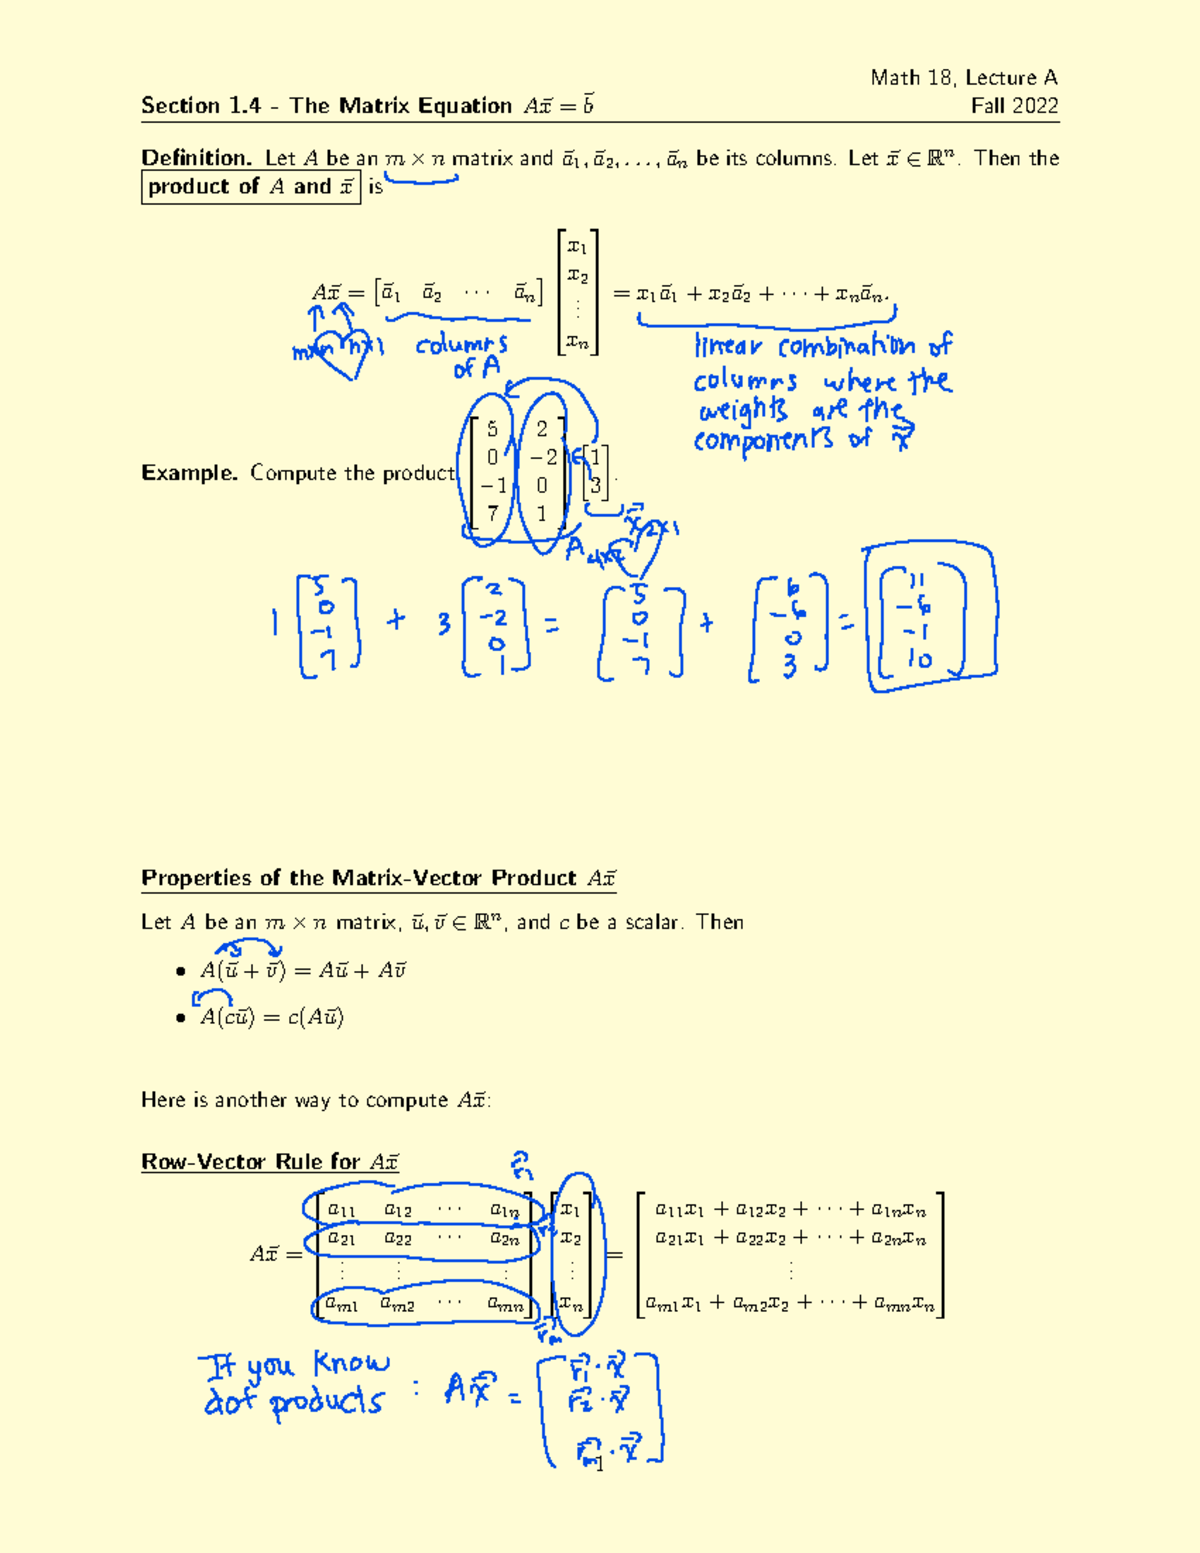 Math 18, Lecture A
Section 1.4 - The Matrix Equation Ax⃗ = b⃗ Fall 2022
Definition. Let A be an m × n matrix and a⃗₁, a⃗₂, . . . , a⃗ₙ be its columns. Let x⃗ ∈ ℝⁿ. Then the
product of A and x⃗ is
Ax⃗ = [a⃗₁ a⃗₂ ⋯ a⃗ₙ] [x₁ x₂ ⋮ xₙ] = x₁a⃗₁ + x₂a⃗₂ + ⋯ + xₙa⃗ₙ.
m×n n×1
columns
of A
linear combination of
columns where the
weights are the
components of x⃗
Example. Compute the product [5 2; 0 −2; −1 0; 7 1] [1; 3].
A 4×2 x⃗ 2×1
1 [5; 0; −1; 7] + 3 [2; −2; 0; 1] = [5; 0; −1; 7] + [6; −6; 0; 3] = [11; −6; −1; 10]
Properties of the Matrix-Vector Product Ax⃗
Let A be an m × n matrix, u⃗, v⃗ ∈ ℝⁿ, and c be a scalar. Then
• A(u⃗ + v⃗) = Au⃗ + Av⃗
• A(cu⃗) = c(Au⃗)
Here is another way to compute Ax⃗:
Row-Vector Rule for Ax⃗
r⃗₁
Ax⃗ = [a₁₁ a₁₂ ⋯ a₁ₙ; a₂₁ a₂₂ ⋯ a₂ₙ; ⋮ ⋮ ⋮; aₘ₁ aₘ₂ ⋯ aₘₙ] [x₁; x₂; ⋮; xₙ] = [a₁₁x₁ + a₁₂x₂ + ⋯ + a₁ₙxₙ; a₂₁x₁ + a₂₂x₂ + ⋯ + a₂ₙxₙ; ⋮; aₘ₁x₁ + aₘ₂x₂ + ⋯ + aₘₙxₙ]
r⃗₂
r⃗ₘ
If you know
dot products : Ax⃗ = [r⃗₁·x⃗; r⃗₂·x⃗; r⃗ₘ·x⃗]
1